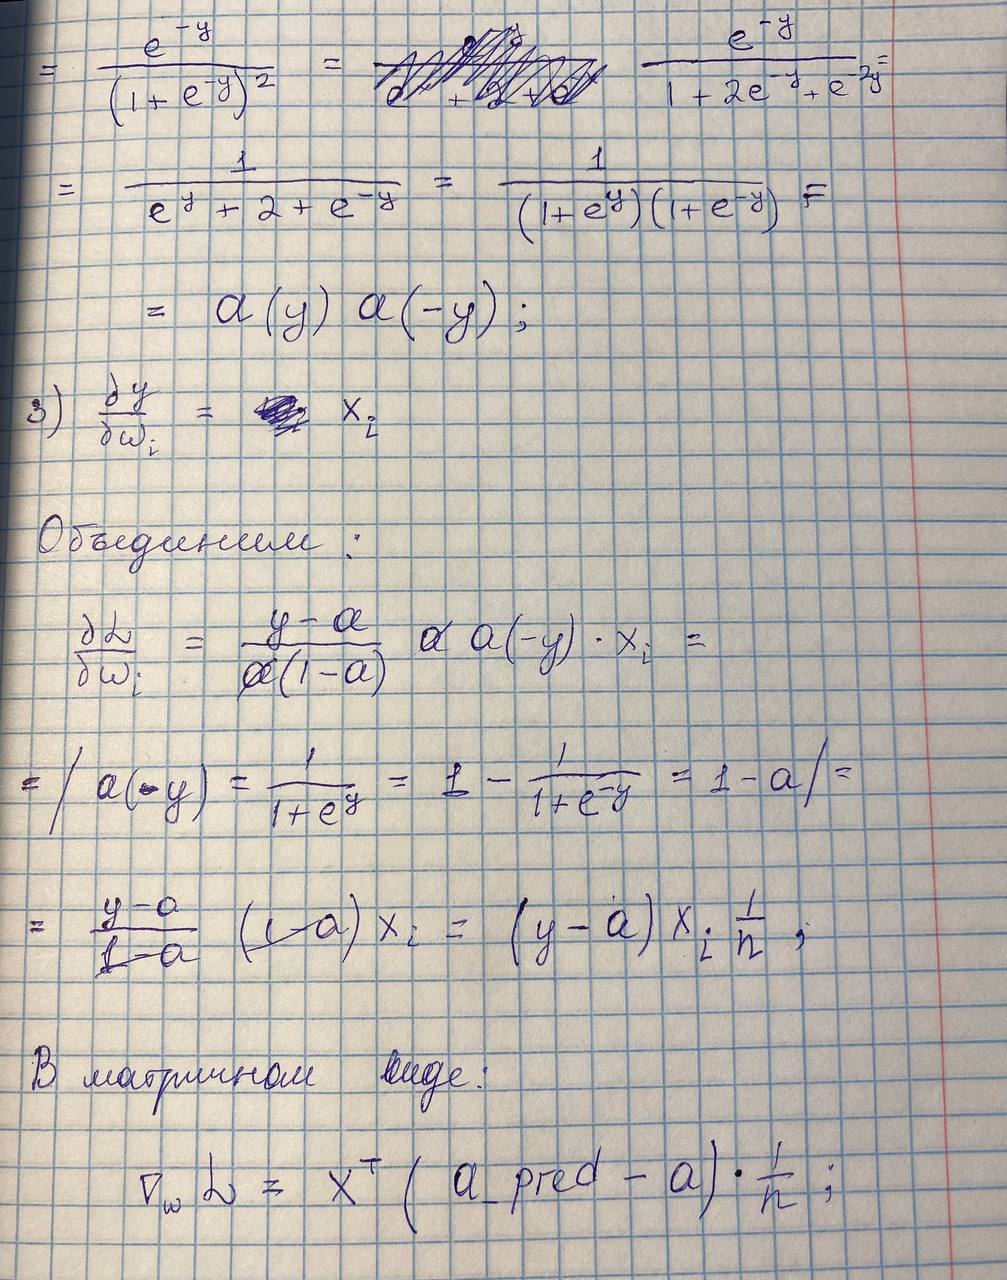 = e^{-y} / (1 + e^{-y})^2 = e^{-y} / (1 + 2e^{-y} + e^{-2y}) =
= 1 / (e^y + 2 + e^{-y}) = 1 / ((1 + e^y)(1 + e^{-y})) =
= a(y) a(-y);
3) ∂y/∂w_i = x_i
Объединим:
∂L/∂w_i = (y - a) / (a(1 - a)) a a(-y) · x_i =
= / a(-y) = 1 / (1 + e^y) = 1 - 1 / (1 + e^{-y}) = 1 - a / =
= (y - a) / (1 - a) (1 - a) x_i = (y - a) x_i 1/n ;
В матричном виде:
∇_w L = X^T ( a_pred - a) · 1/n ;